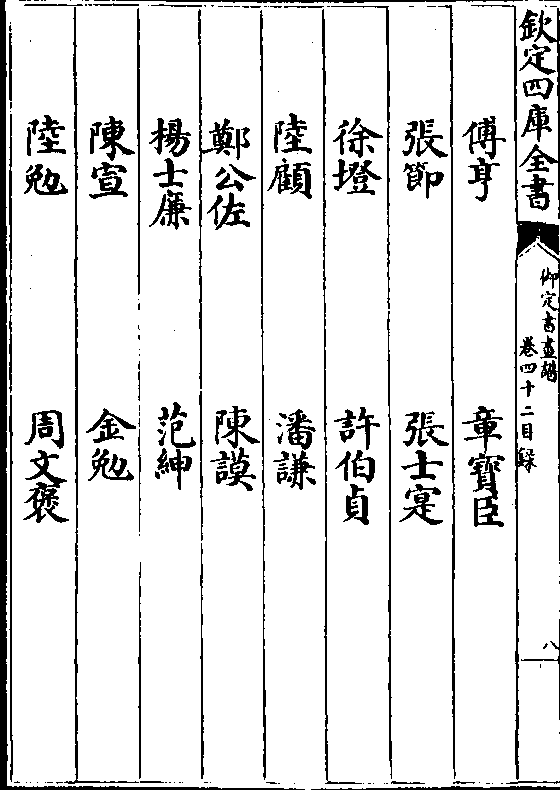 欽定四庫全書
御定書畫譜
卷四十二目録
八
傅亨 章寶臣
張節 張士寔
徐墱 許伯貞
陸顧 潘謙
鄭公佐 陳謨
楊士廉 范紳
陳宣 金勉
陸勉 周文褒